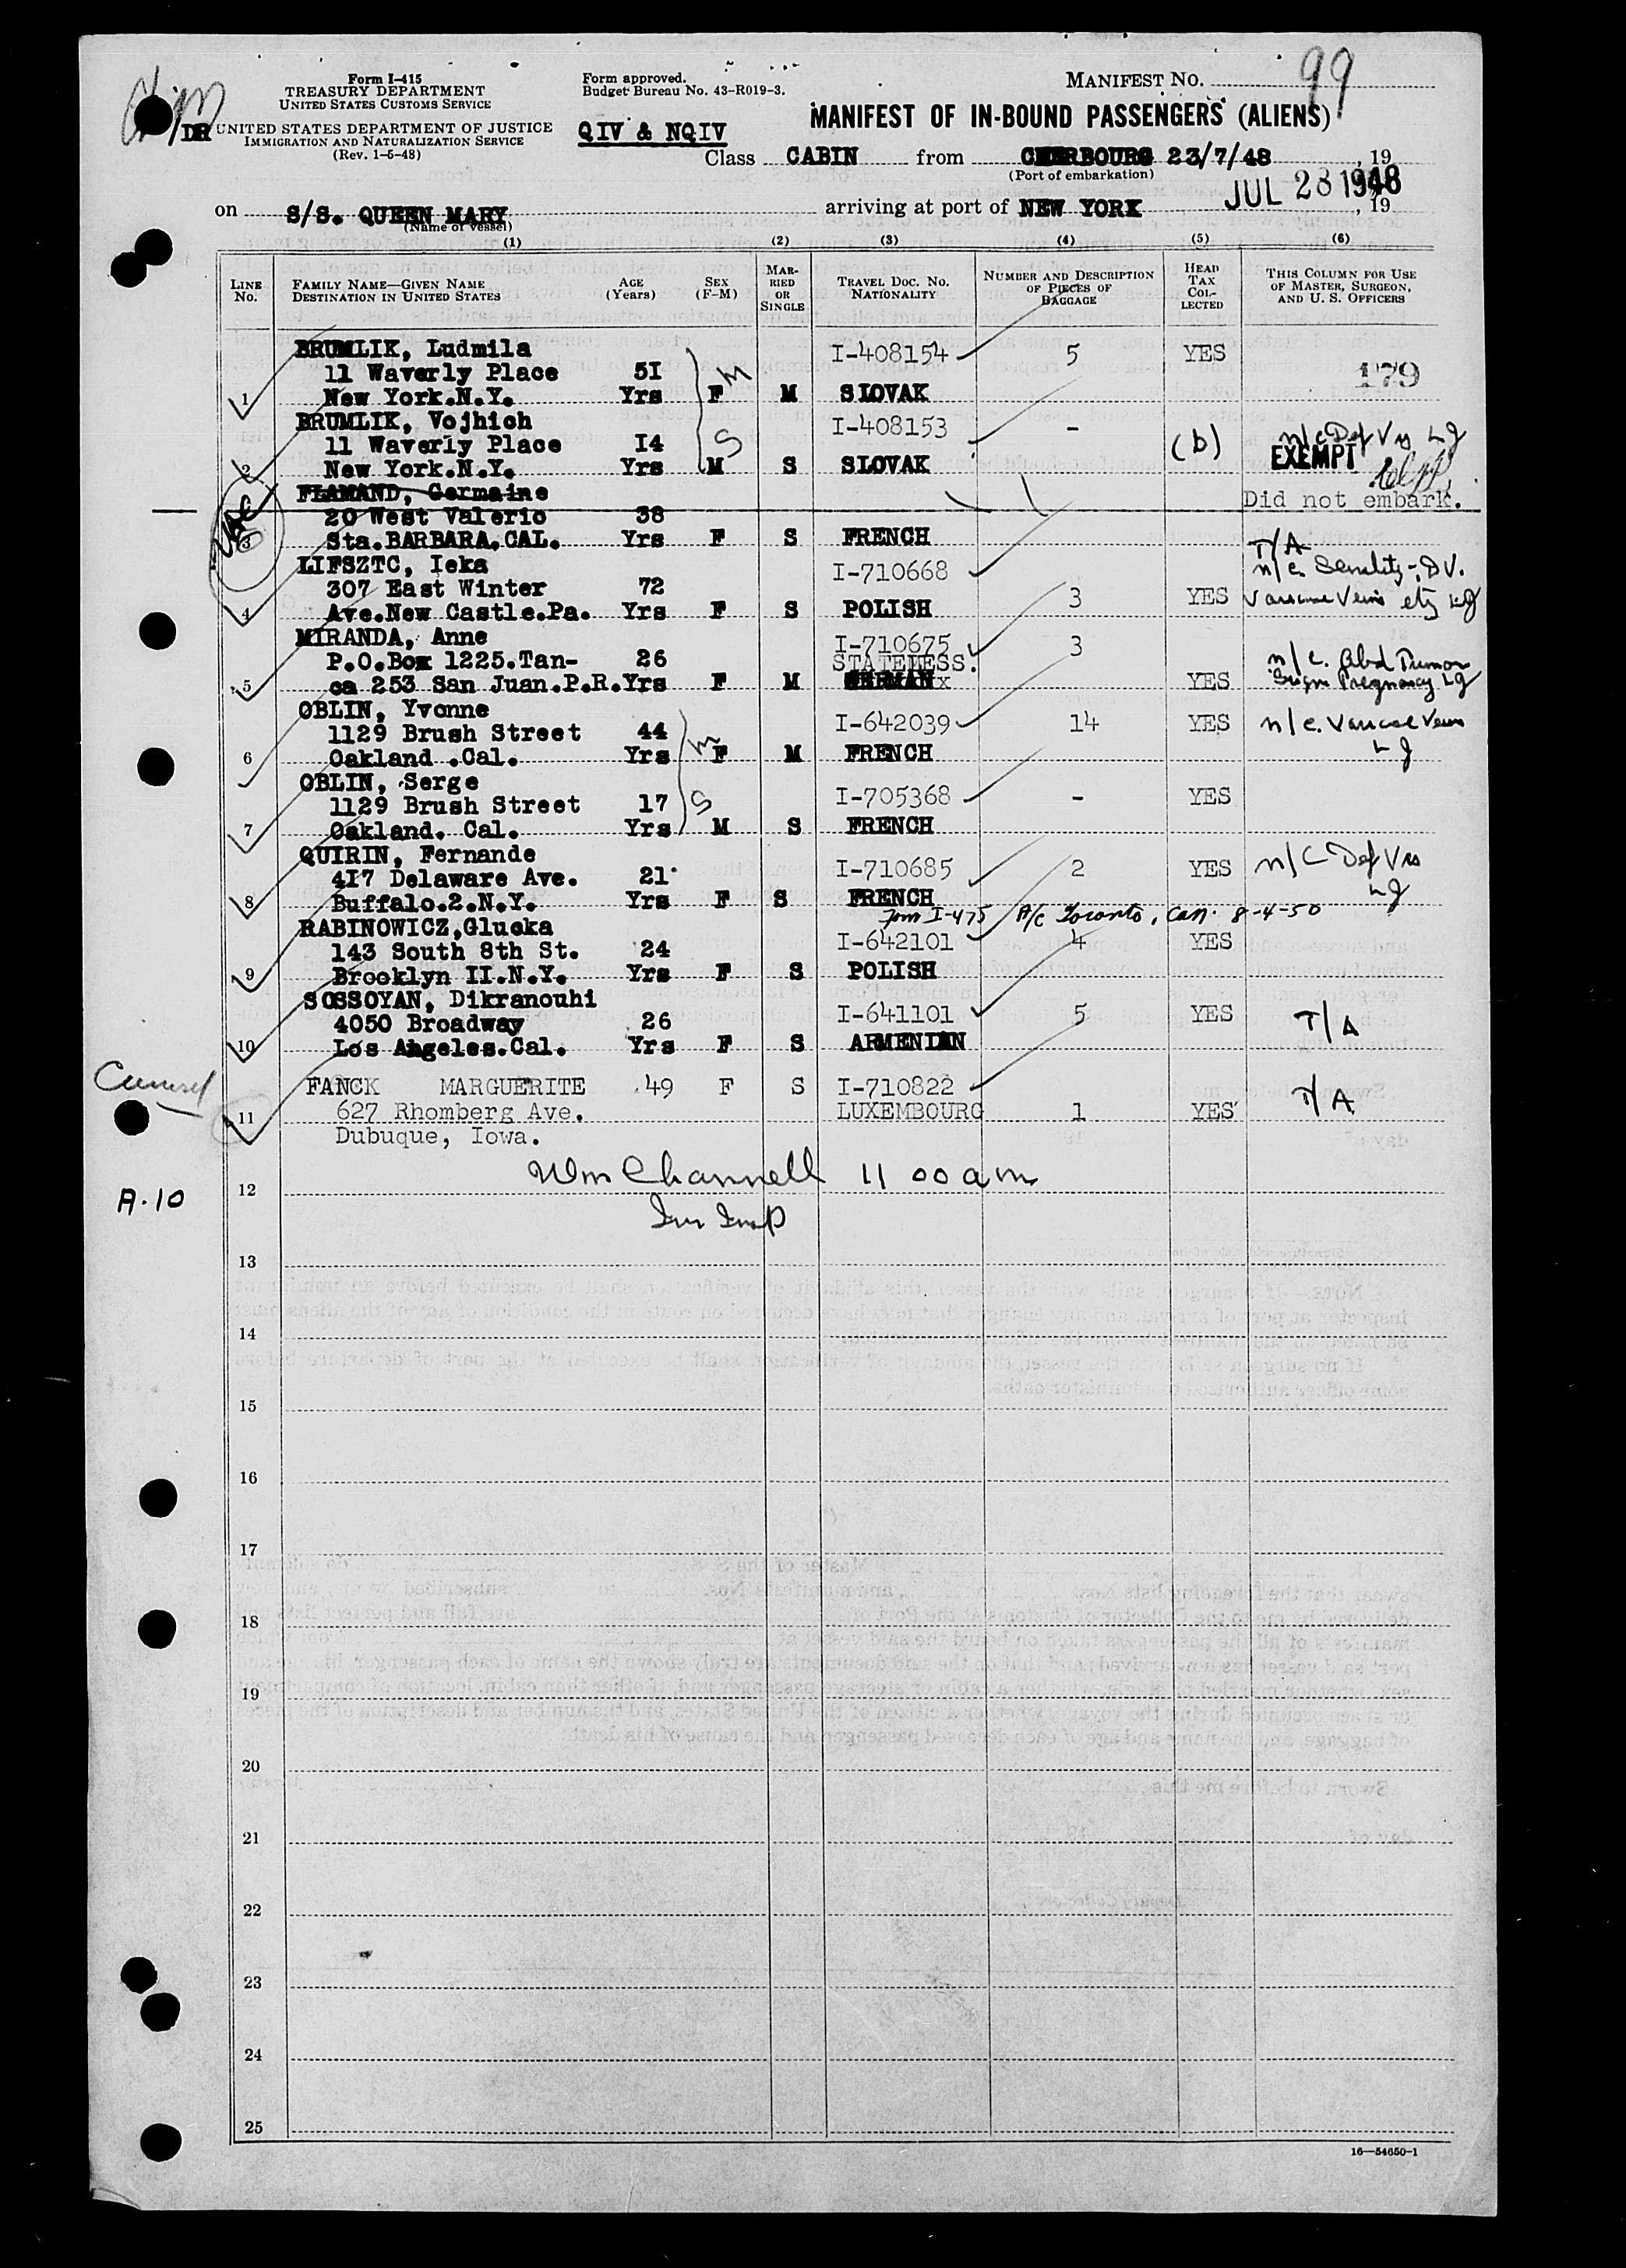 Form I-415
TREASURY DEPARTMENT
UNITED STATES CUSTOMS SERVICE
DR UNITED STATES DEPARTMENT OF JUSTICE
IMMIGRATION AND NATURALIZATION SERVICE
(Rev. 1-6-48)
Form approved.
Budget Bureau No. 43-R019-3.
QIV & NQIV
MANIFEST NO. 99
MANIFEST OF IN-BOUND PASSENGERS (ALIENS)
Class CABIN from CHERBOURG 23/7/48, 19
(Port of embarkation)
on S/S. QUEEN MARY arriving at port of NEW YORK JUL 28 1948, 19
(Name of vessel)
(1) (2) (3) (4) (5) (6)
LINE No. FAMILY NAME—GIVEN NAME DESTINATION IN UNITED STATES AGE (Years) SEX (F-M) MARRIED OR SINGLE TRAVEL DOC. NO. NATIONALITY NUMBER AND DESCRIPTION OF PIECES OF BAGGAGE HEAD TAX COLLECTED THIS COLUMN FOR USE OF MASTER, SURGEON, AND U. S. OFFICERS
BRUMLIK, Ludmila I-408154 5 YES
11 Waverly Place 51 M 179
1 New York.N.Y. Yrs F M SLOVAK
BRUMLIK, Vojhich I-408153 -
11 Waverly Place I4 S (b) n/c Def Vs Lg
2 New York.N.Y. Yrs M S SLOVAK EXEMPT
FLAMAND, Germaine Did not embark.
20 West Valerio 38
3 Sta.BARBARA.CAL. Yrs F S FRENCH
LIFSZTC, Ieka I-710668 T/A
307 East Winter 72 3 YES n/c. Senility - D.V.
4 Ave.New Castle.Pa. Yrs F S POLISH Varicose Veins etc Lg
MIRANDA, Anne I-710675 3
P.O.Box 1225.Tan- 26 STATELESS. n/c. Abd Tumor
5 ca 253 San Juan.P.R.Yrs F M GERMANx YES Pregnancy Lg
OBLIN, Yvonne I-642039 14 YES n/c. Varicose Veins
1129 Brush Street 44 M Lg
6 Oakland .Cal. Yrs F M FRENCH
OBLIN, Serge I-705368 - YES
1129 Brush Street 17 S
7 Oakland. Cal. Yrs M S FRENCH
QUIRIN, Fernande I-710685 2 YES n/c Def Vs
4I7 Delaware Ave. 21 Lg
8 Buffalo.2.N.Y. Yrs F S FRENCH
Form I-475 A/c Toronto, Can. 8-4-50
RABINOWICZ,Glucka I-642101 4 YES
143 South 8th St. 24
9 Brooklyn II.N.Y. Yrs F S POLISH
SOSSOYAN, Dikranouhi I-641101 5 YES T/A
4050 Broadway 26
10 Los Angeles.Cal. Yrs F S ARMENIAN
FANCK MARGUERITE 49 F S I-710822 T/A
11 627 Rhomberg Ave. LUXEMBOURG 1 YES
Dubuque, Iowa.
Wm Channell 11 00 am
12
Im Insp
A-10
13
14
15
16
17
18
19
20
21
22
23
24
25
16—54650-1